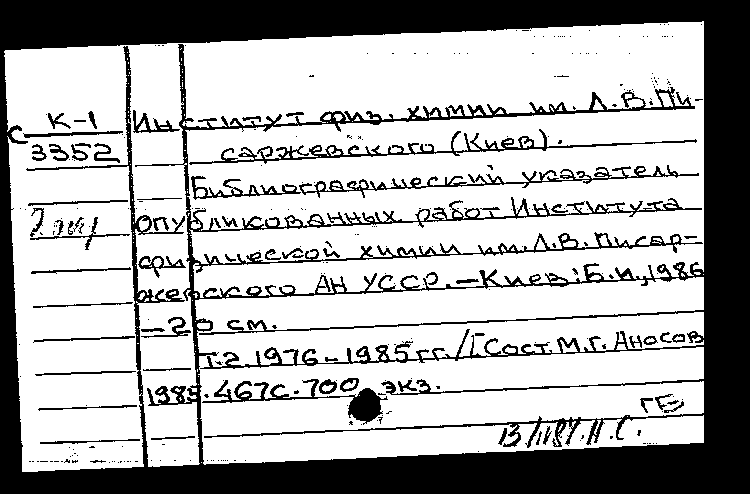 К-1
С
3352
2 экз
Институт физ. химии им. Л.В.Пи-
саржевского (Киев).
Библиографический указатель
опубликованных работ Института
физической химии им.Л.В.Писар-
жевского АН УССР.-Киев:Б.и.,1986
-20 см.
Т.2.1976-1985гг./[Сост.М.Г.Аносов
1985.467с.700 экз.
ГЕ
Н.С.